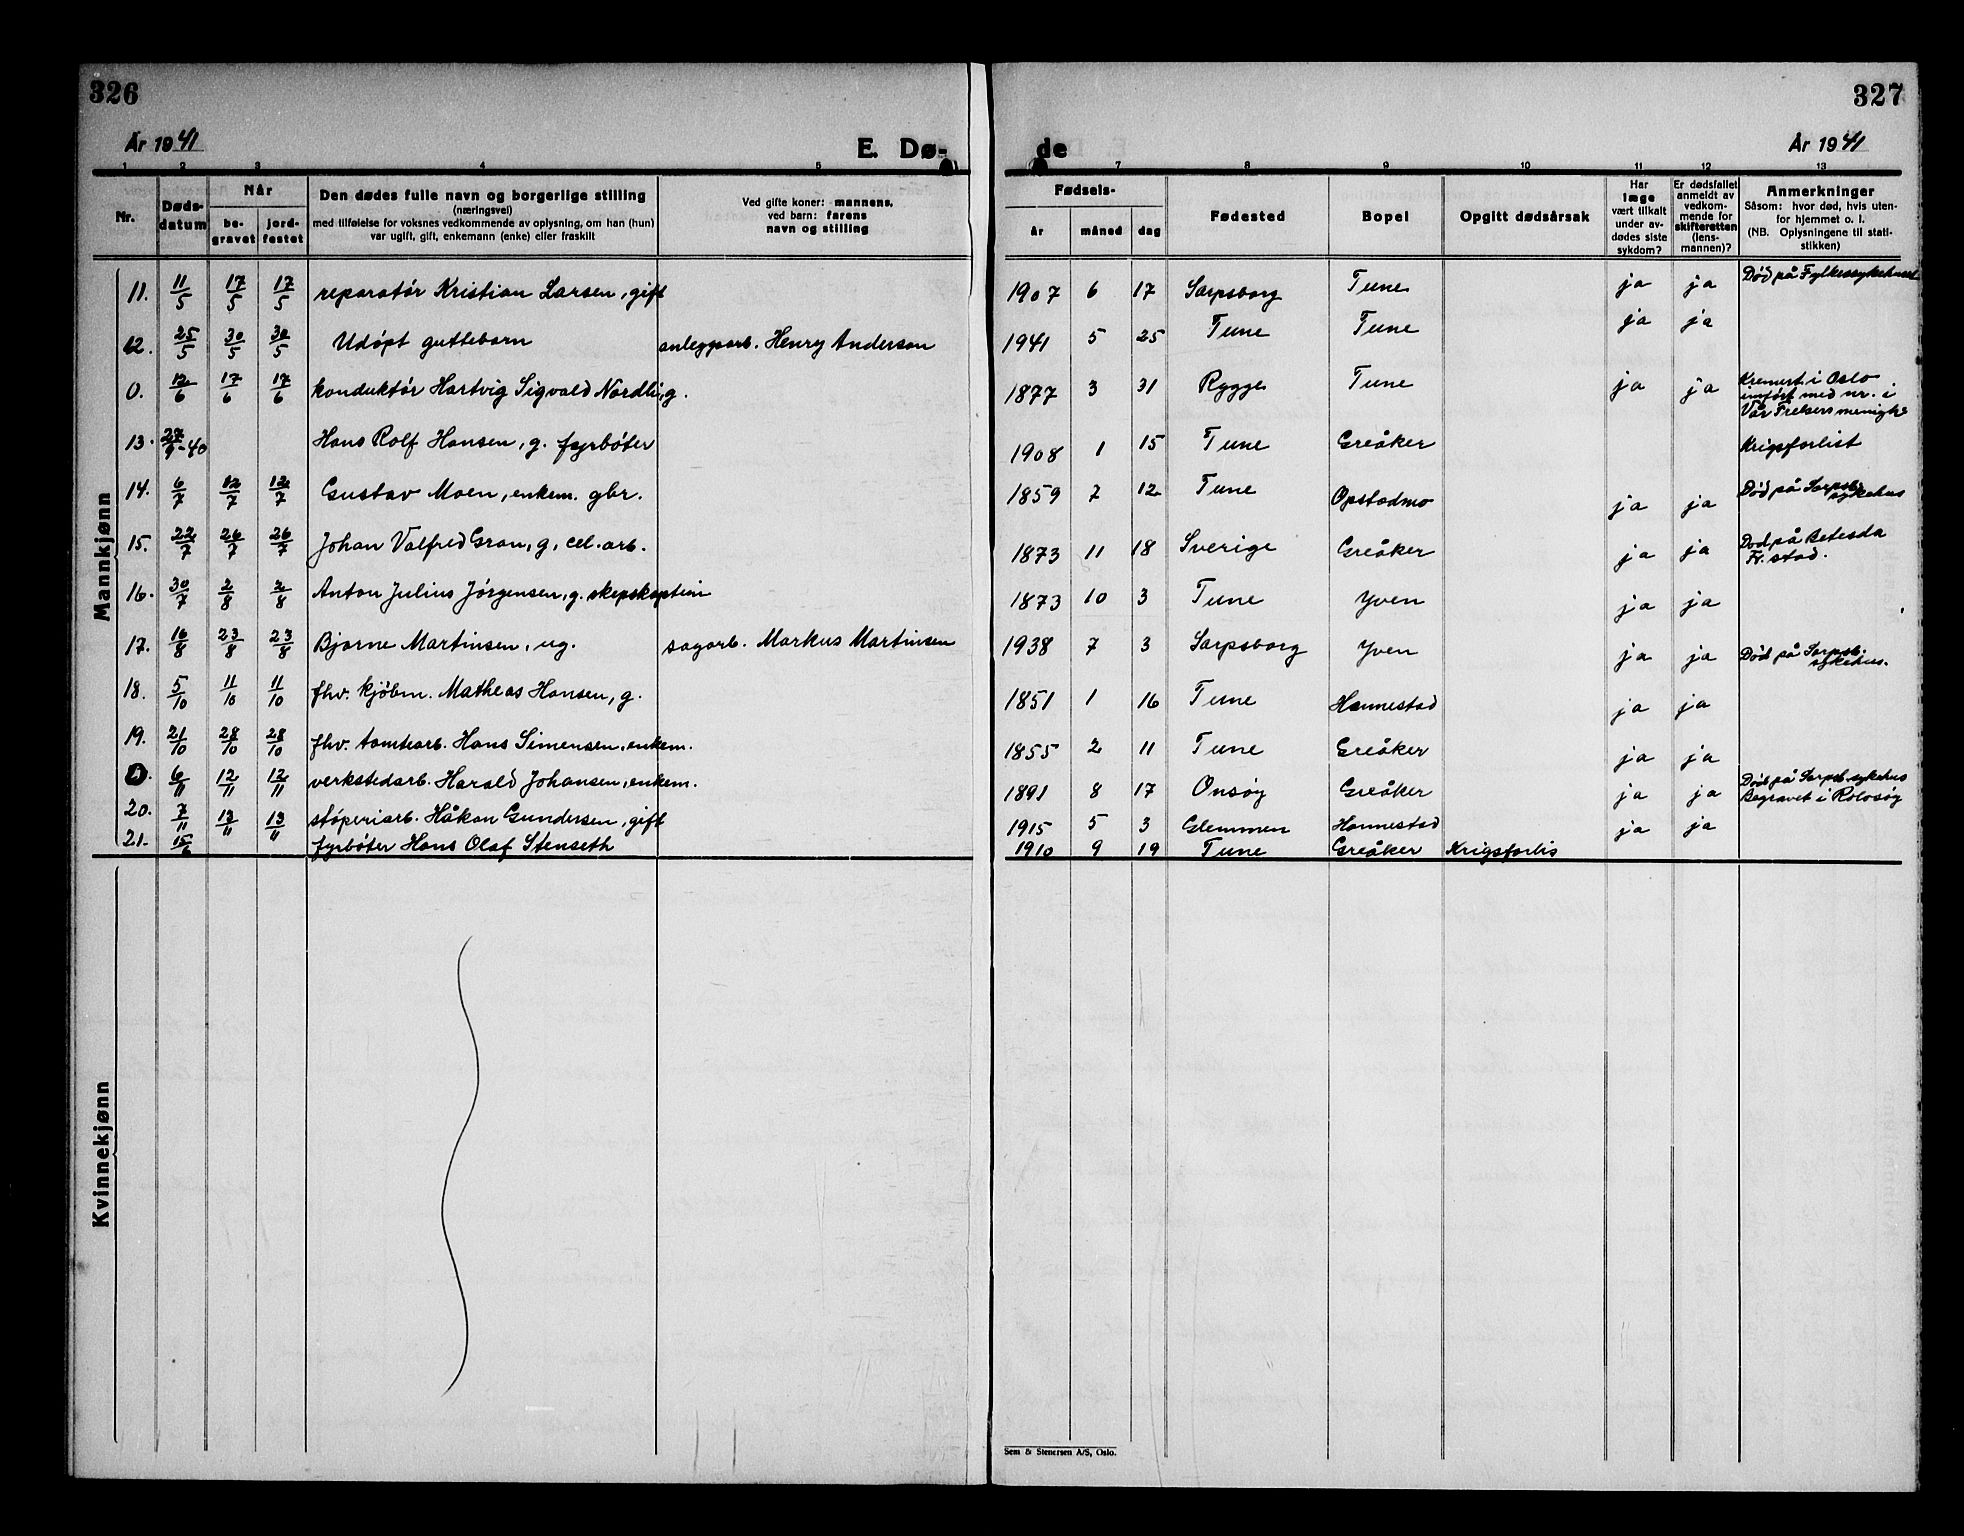 326
327
År 1941
E. Dø-
de
År 1941
1 2 3 4 5 7 8 9 10 11 12 13
Nr.
Døds-
datum
Når
be-
gravet
jord-
festet
Den dødes fulle navn og borgerlige stilling
(næringsvei)
med tilføielse for voksnes vedkommende av oplysning, om han (hun)
var ugift, gift, enkemann (enke) eller fraskilt
Ved gifte koner: mannens,
ved barn: farens
navn og stilling
Fødsels-
år måned dag
Fødested
Bopel
Opgitt dødsårsak
Har
læge
vært tilkalt
under av-
dødes siste
sykdom?
Er dødsfallet
anmeldt av
vedkom-
mende for
skifteretten
(lens-
mannen)?
Anmerkninger
Såsom: hvor død, hvis uten-
for hjemmet o. l.
(NB. Oplysningene til stati-
stikken)
Mannkjønn
11. 11/5 17/5 17/5 reparatør Kristian Larsen, gift 1907 6 17 Sarpsborg Tune ja ja Död på Fylkessykehuset
12. 25/5 30/5 30/5 Udöpt guttebarn anleggsarb. Henry Anderson 1941 5 25 Tune Tune ja ja
0. 12/6 17/6 17/6 konduktör Hartvig Sigvald Nordli, g. 1877 3 31 Rygge Tune ja ja Kremert i Oslo
innfört med nr. i
Vår Frelsers menighe
13. 27/9-40 Hans Rolf Hansen, g. fyrböter 1908 1 15 Tune Greåker Krigsforlist
14. 6/7 12/7 12/7 Gustav Moen, enkem. gbr. 1859 7 12 Tune Opstadmo ja ja Död på Sarpsb.
sykehus
15. 22/7 26/7 26/7 Johan Valfred Gran, g, cel. arb. 1873 11 18 Sverige Greåker ja ja Död på Betesda
Fr. stad.
16. 30/7 2/8 2/8 Anton Julius Jörgensen, g. skipskaptein 1873 10 3 Tune Yven ja ja
17. 16/8 23/8 23/8 Bjarne Martinsen, ug. sagarb. Markus Martinsen 1938 7 3 Sarpsborg Yven ja ja Död på Sarpsb.
sykehus.
18. 5/10 11/10 11/10 fhv. kjöbm. Matheas Hansen, g. 1851 1 16 Tune Hannestad ja ja
19. 21/10 28/10 28/10 fhv. tomtearb. Hans Simensen, enkem. 1855 2 11 Tune Greåker ja ja
0. 6/11 12/11 12/11 verkstedarb. Harald Johansen, enkem. 1891 8 17 Onsöy Greåker ja ja Död på Sarpsb. sykehus
Begravet i Rolvsöy
20. 7/11 13/11 13/11 stöperiarb. Håkon Gundersen, gift 1915 5 3 Glemmen Hannestad ja ja
21. 15/6 fyrböter Hans Olaf Stenseth 1910 9 19 Tune Greåker Krigsforlis
Kvinnekjønn
Sem & Stenersen A/S, Oslo.